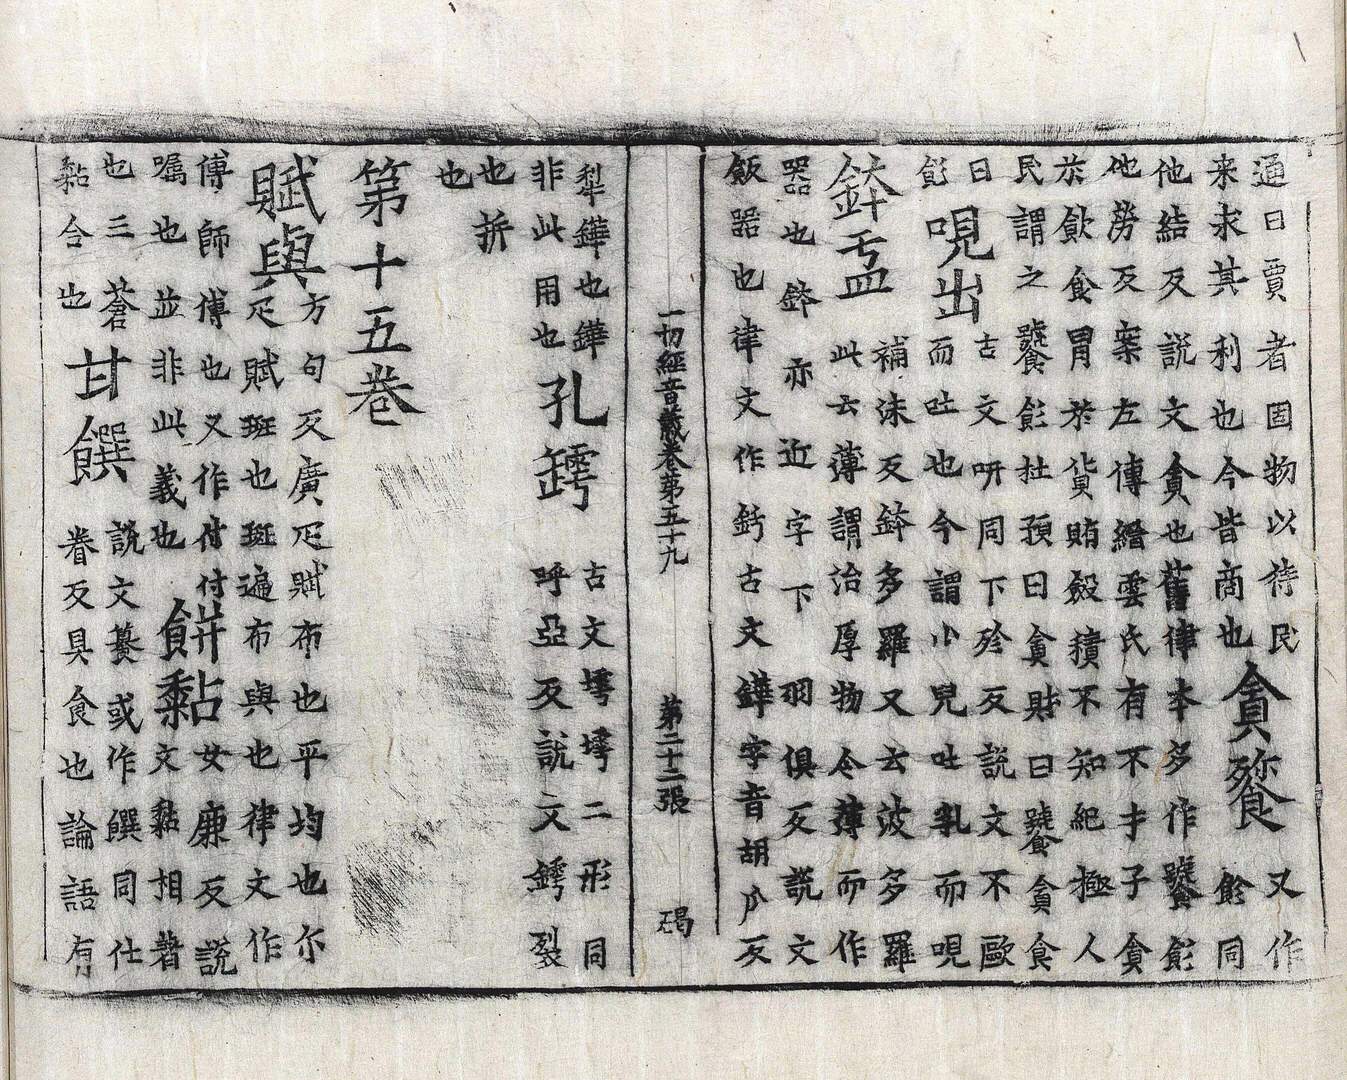 通曰賈者固物以待民
来求其利也今皆商也
貪餮
又作
飻同
他結反說文貪也舊律本多作饕飻
他勞反案左傳縉雲氏有不才子貪
於飲食冒於貨賄斂積不知紀極人
民謂之饕飻杜預曰貪財曰饕貪食
曰
飻
哯出
古文呀同下殄反說文不歐
而吐也今謂小兒吐乳而哯
鉢盂
補沫反鉢多羅又云波多羅
此云薄謂治厚物令薄而作
器也鉢亦近字下羽俱反說文
飯器也律文作釪古文鏵字音胡瓜反
一切經音義卷第五十九 第二十二張 碣
犁鏵也鏵
非此用也
孔罅
古文㙤㙤二形同
呼亞反說文罅裂
也坼
也
第十五卷
賦與
方句反廣疋賦布也平均也尒
疋賦班也班遍布與也律文作
傅師傅也又作付付
囑也並非此義也
餅黏
女廉反說
文黏相著
也三蒼
黏合也
甘饌
說文籑或作饌同仕
眷反具食也論語有